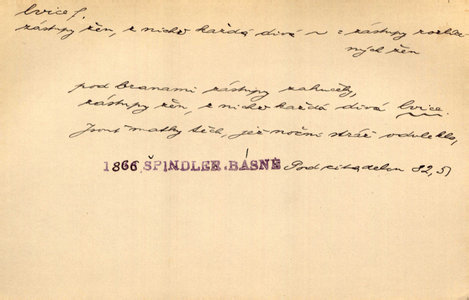 lvice f.
zástupy žen, z nichž každá divá ~ : zástupy rozlíce-
ných žen
pod branami zástupy zahučely,
zástupy žen, z nichž každá divá lvice.
Jsouť matky těch, jež noční stráž odvlekla,
1866 ŠPINDLER.BÁSNĚ Pod citadelou 82, 5)